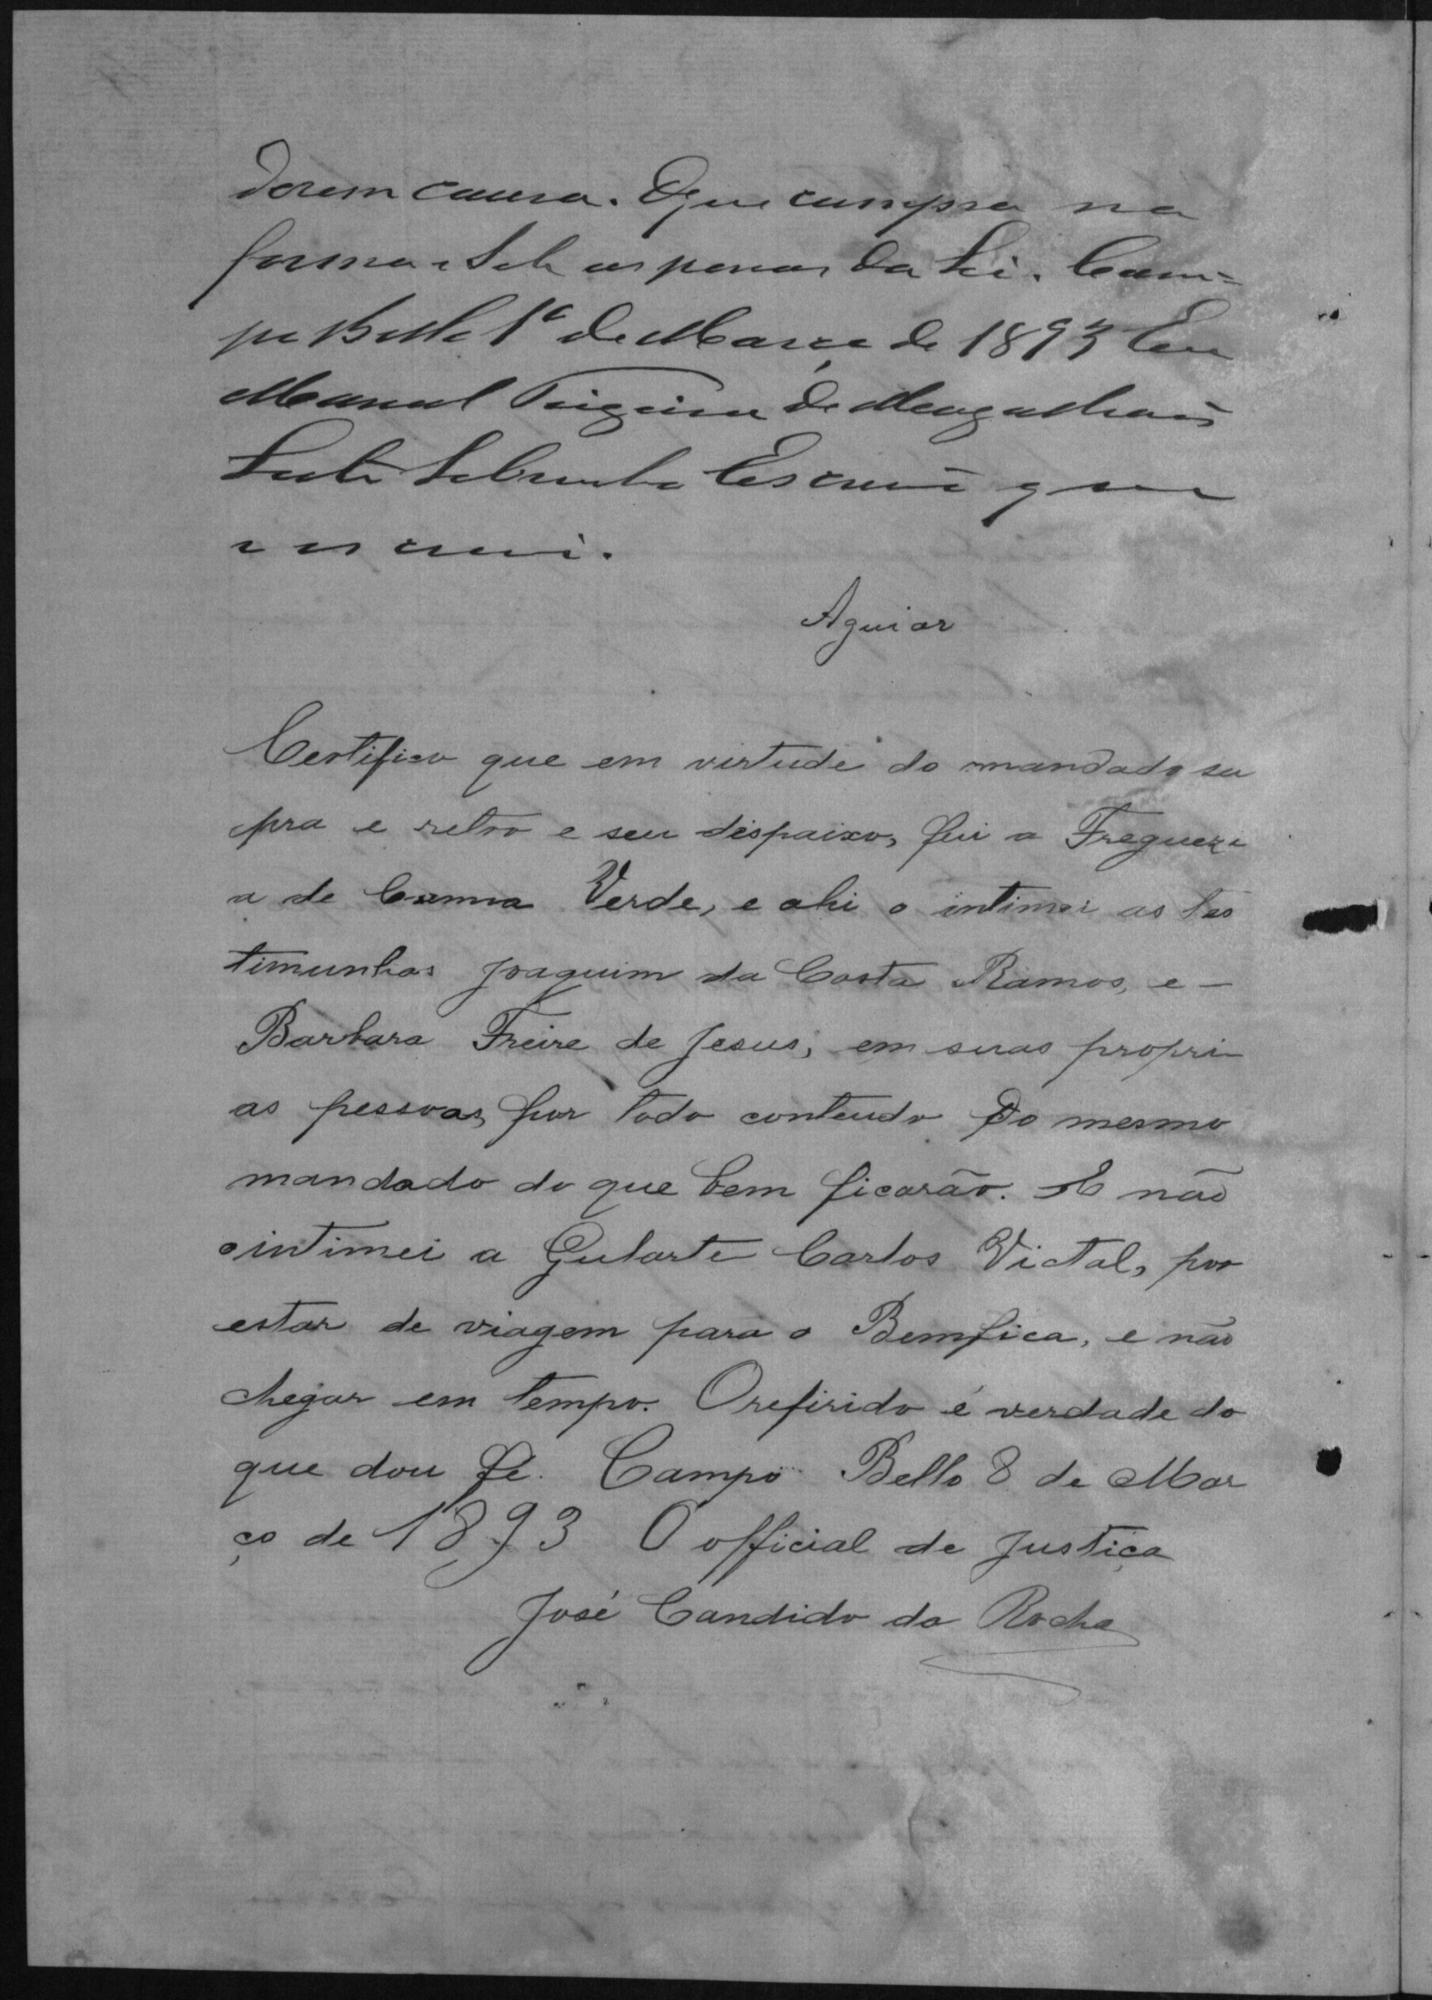 derem causa. O que cumpra na
forma e Sob as penas da Lei. Cam=
po Bello 1º de Março de 1893 Eu
Manoel Teixeira de Magalhães
Leite Sobrinho Escrivão que
o escrevi.
Aguiar
Certifico que em virtude do mandado su
pra e retro e seu dispaixo, fui a Fregueze
a de Canna Verde, e ahi o intimei as tes
timunhas Joaquim da Costa Ramos, e –
Barbara Freire de Jesus, em suas propri
as pessoas, por todo conteudo do mesmo
mandado do que bem ficarão. E não
intimei a Gularte Carlos Victal, por
estar de viagem para o Bemfica, e não
chegar em tempo. O refirido é verdade do
que dou fé. Campo Bello 8 de Mar
ço de 1893 O official de Justiça
José Candido da Rocha